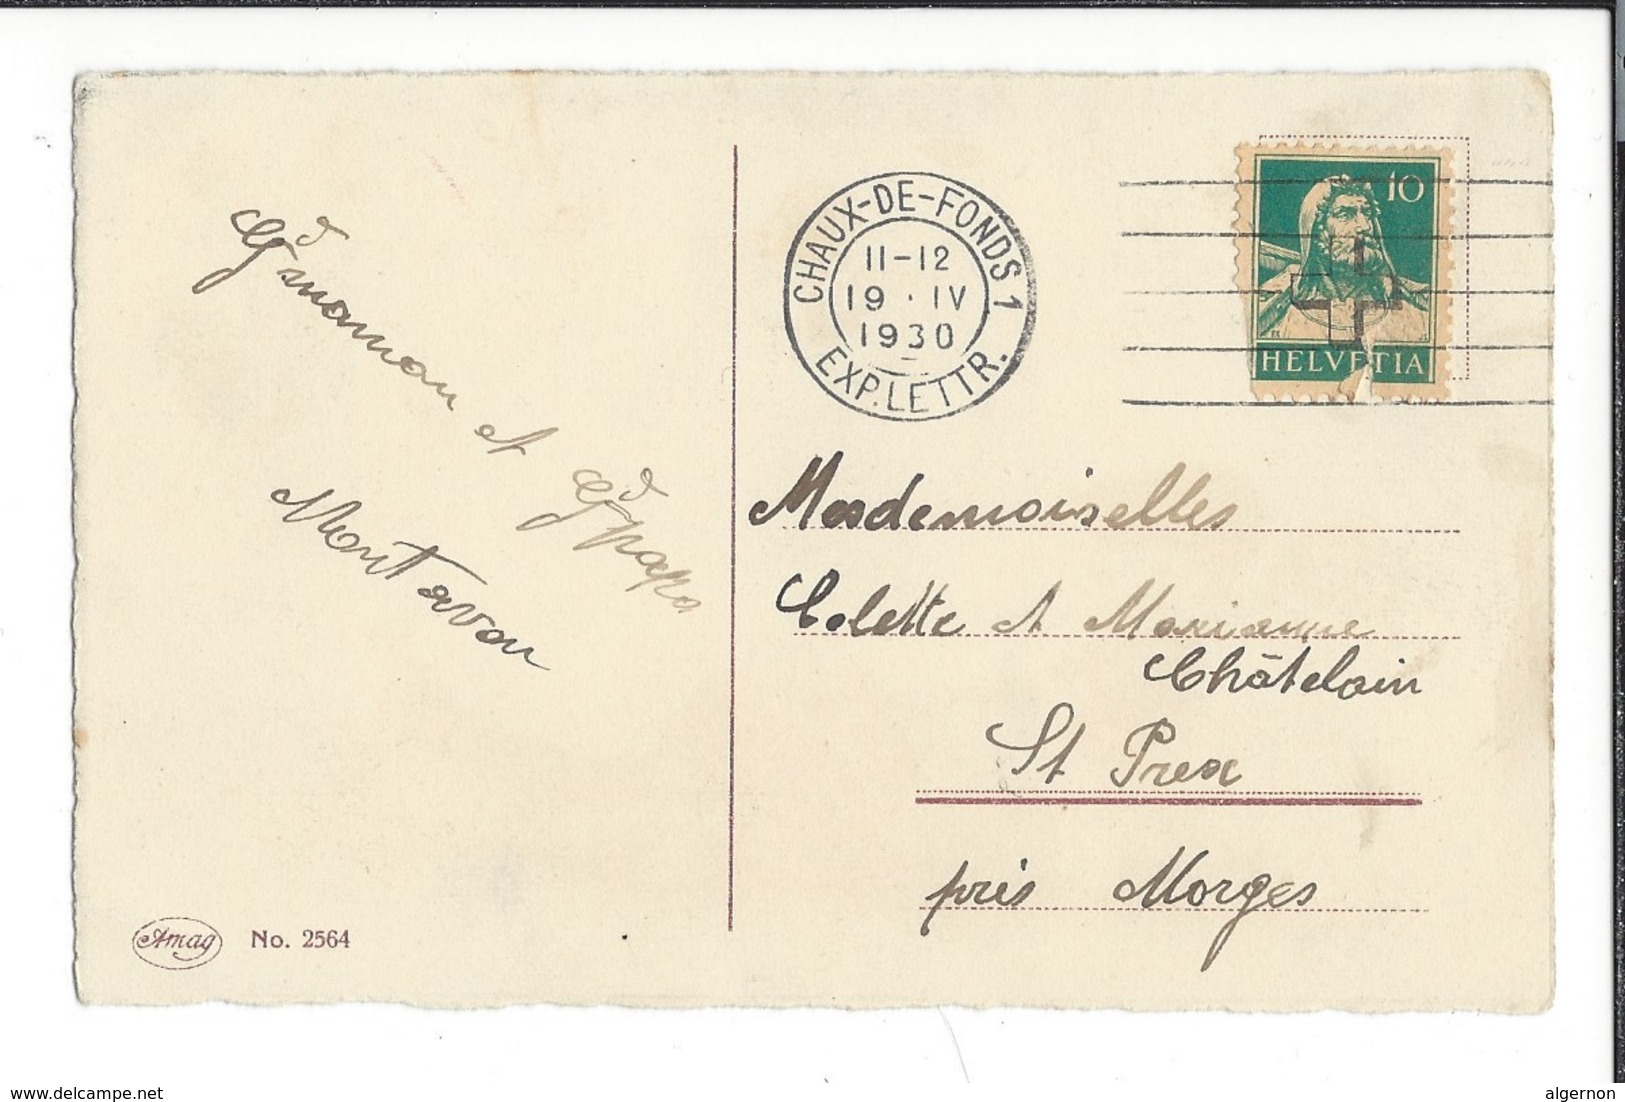 Gdmaman et Gdpapa
Montavon
Amag No. 2564
CHAUX-DE-FONDS 1
11-12
19 · IV
1930
EXP. LETTR.
10
HELVETIA
Mesdemoiselles
Colette et Marianne
Châtelain
St Prex
près Morges
www.delcampe.net
algernon